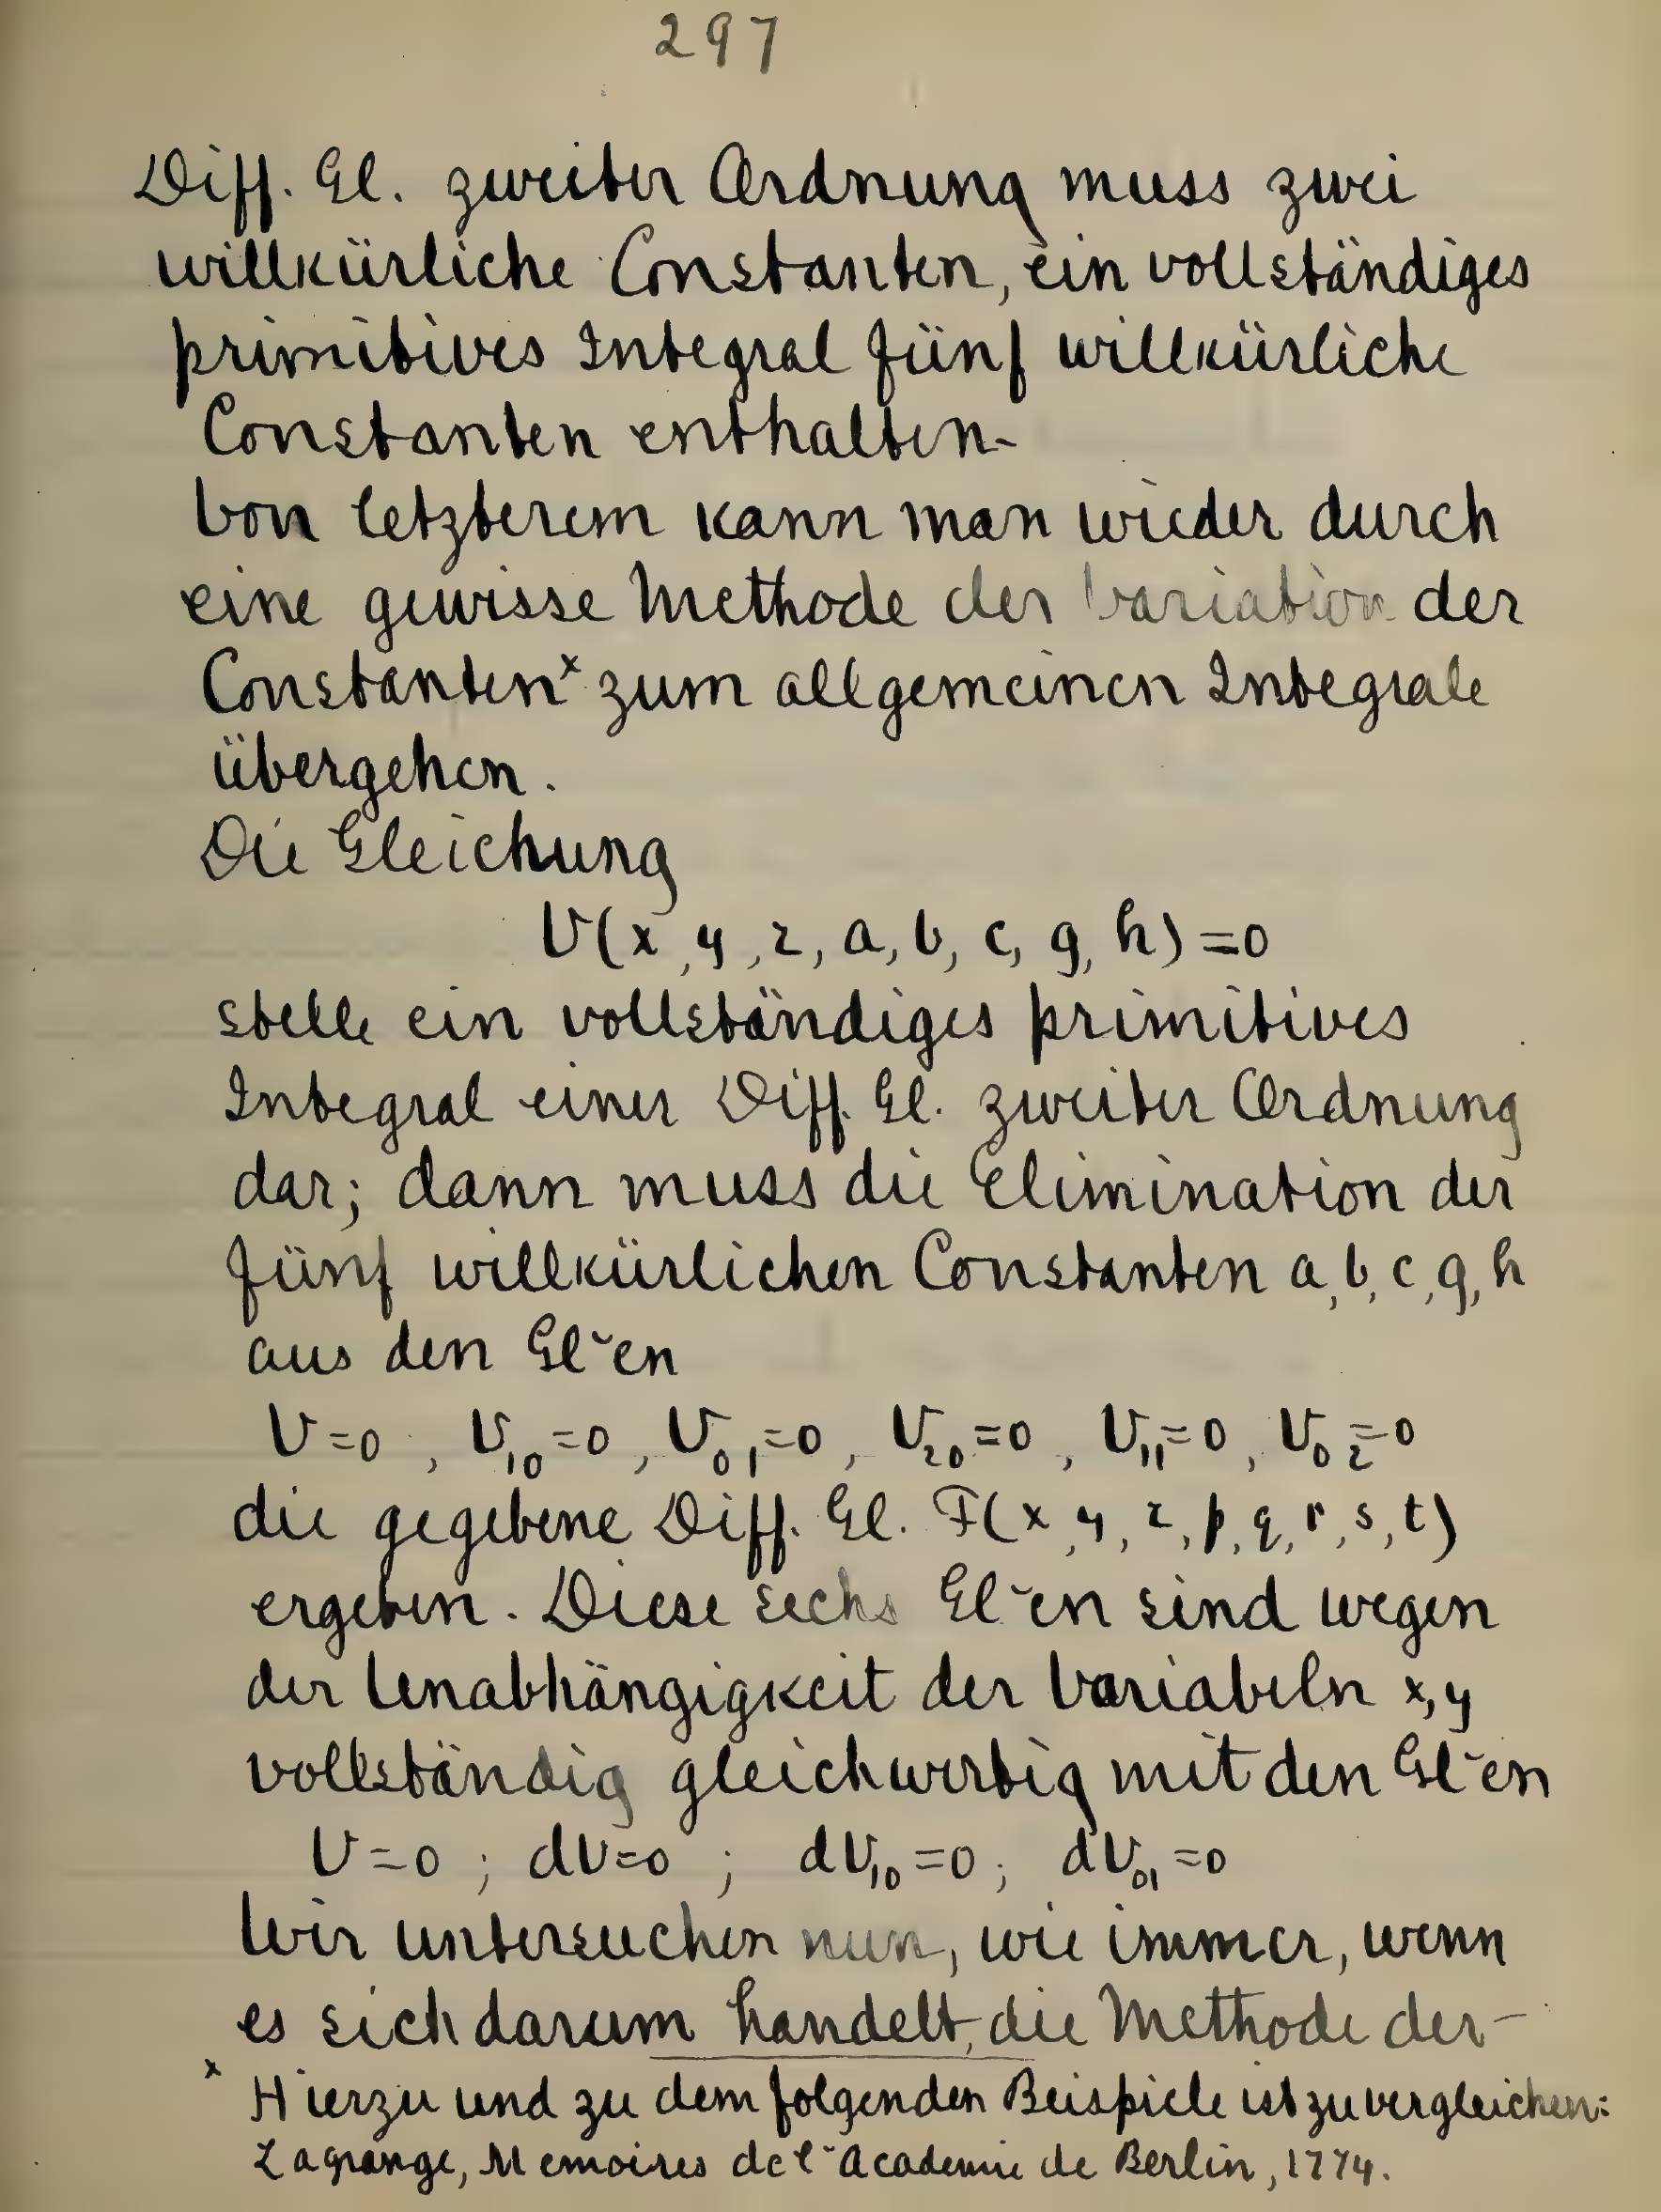 297
Diff. Gl. zweiter Ordnung muss zwei
willkürliche Constanten, ein vollständiges
primitives Integral fünf willkürliche
Constanten enthalten.
Von letzterem kann man wieder durch
eine gewisse Methode der Variation der
Constantenˣ zum allgemeinen Integrale
übergehen.
Die Gleichung
V(x, y, z, a, b, c, g, h) = 0
stelle ein vollständiges primitives
Integral einer Diff. Gl. zweiter Ordnung
dar; dann muss die Elimination der
fünf willkürlichen Constanten a, b, c, g, h
aus den Gl~en
V=0, V₁₀=0, V₀₁=0, V₂₀=0, V₁₁=0, V₀₂=0
die gegebene Diff. Gl. F(x, y, z, p, q, r, s, t)
ergeben. Diese sechs Gl~en sind wegen
der Unabhängigkeit der Variabeln x, y
vollständig gleichwertig mit den Gl~en
V=0; dV=0; dV₁₀=0; dV₀₁=0
Wir untersuchen nun, wie immer, wenn
es sich darum handelt, die Methode der-
x Hierzu und zu dem folgenden Beispiele ist zu vergleichen:
Lagrange, Memoires de l'Academie de Berlin, 1774.